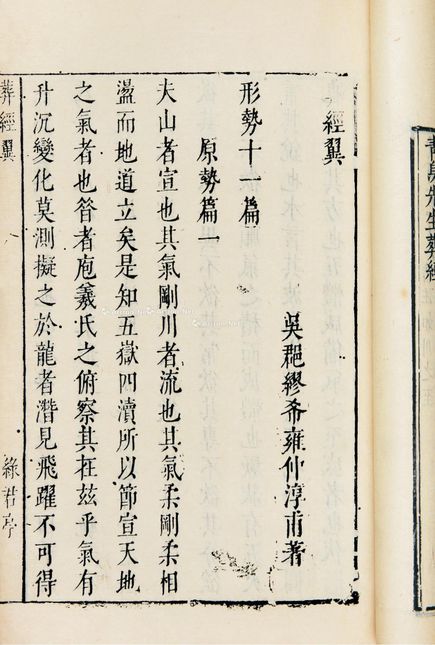 青烏先生葬經
經翼
吳郡繆希雍仲淳甫著
形勢十一篇
原勢篇一
夫山者宣也其氣剛川者流也其氣柔剛柔相
盪而地道立矣是知五嶽四瀆所以節宣天地
之氣者也昝者庖羲氏之俯察其在兹乎氣有
升沉變化莫測擬之於龍者潛見飛躍不可得
葬經翼
八
綠君亭